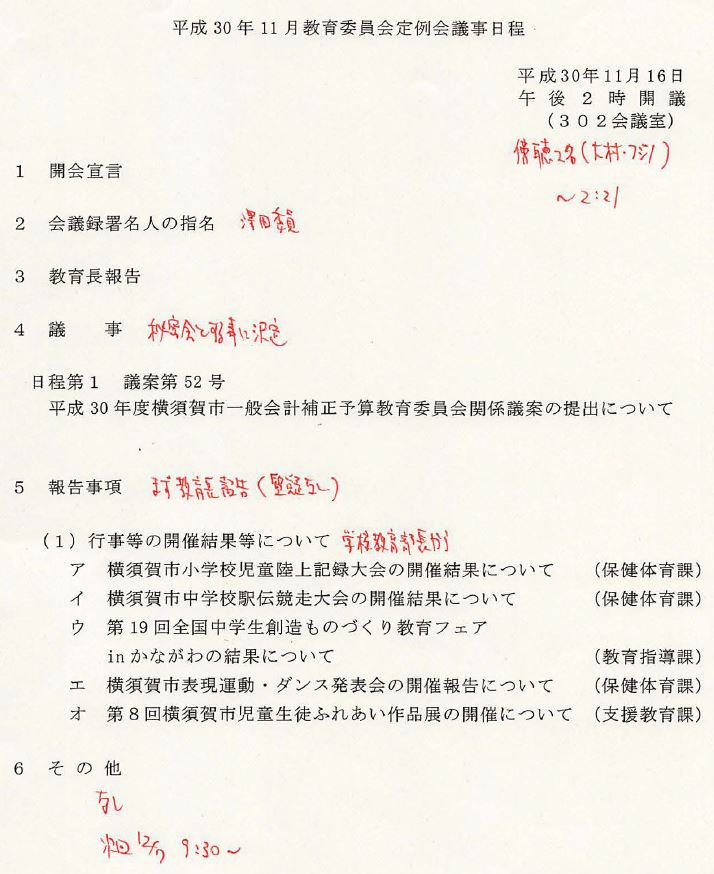 平成30年11月教育委員会定例会議事日程
平成30年11月16日
午後2時開議
（302会議室）
傍聴2名(大村・フジノ)
～2:21
1 開会宣言
2 会議録署名人の指名 澤田委員
3 教育長報告
4 議 事 秘密会とする事に決定
日程第1 議案第52号
平成30年度横須賀市一般会計補正予算教育委員会関係議案の提出について
5 報告事項 まず教育長報告(質疑なし)
（1）行事等の開催結果等について 学校教育部長から
ア 横須賀市小学校児童陸上記録大会の開催結果について （保健体育課）
イ 横須賀市中学校駅伝競走大会の開催結果について （保健体育課）
ウ 第19回全国中学生創造ものづくり教育フェア
inかながわの結果について （教育指導課）
エ 横須賀市表現運動・ダンス発表会の開催報告について （保健体育課）
オ 第8回横須賀市児童生徒ふれあい作品展の開催について （支援教育課）
6 その他
なし
次回12/7 9:30～